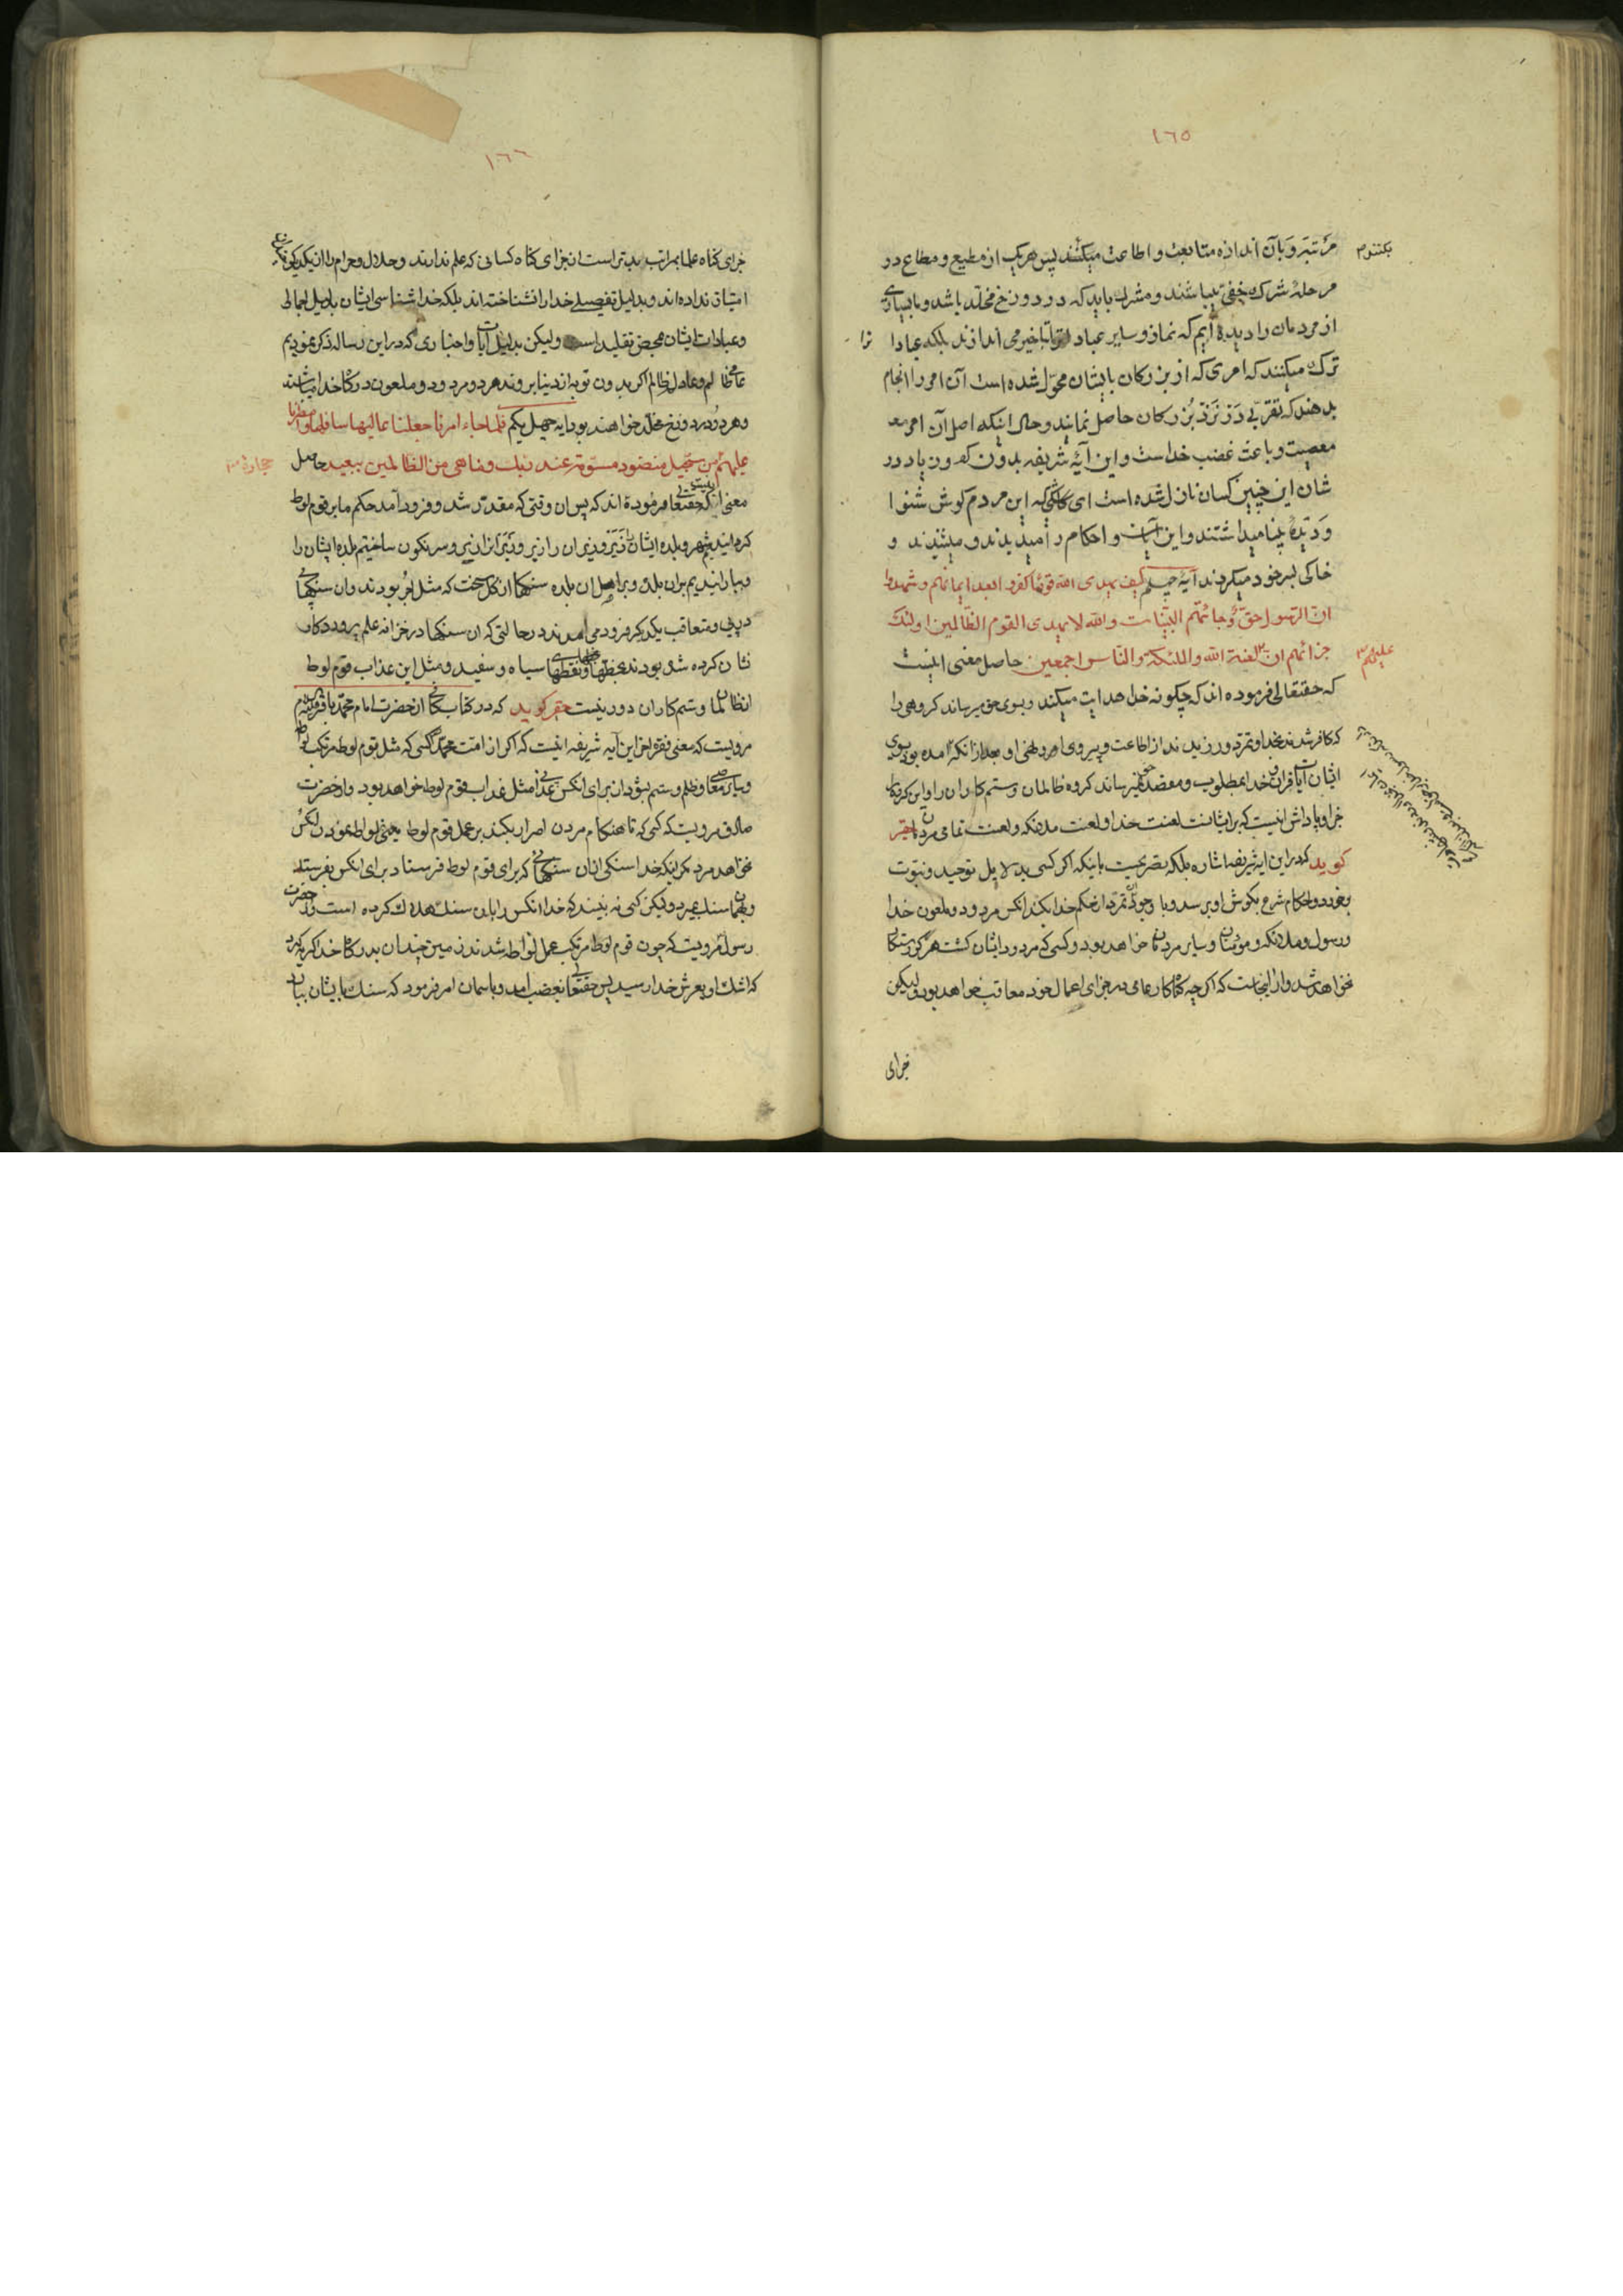 ١٦٥
مرتبه و بآن اندازه متابعت و اطاعت میکنند پس هر یک از مطیع و مطاع در
مرحلهٔ شرک خفی میباشند و مشرک باید که در دوزخ مخلّد باشد و ما بسیاری
از مردمان را دیده ایم که نماز و سایر عبادات را بتاخیر می اندازند بلکه عبادا
ترا
ترک میکنند که امری که از بزرکان بایشان محوّل شده است آن امر را انجام
بدهند که تقرّبی در نزد بزرکان حاصل نمایند و حال اینکه اصل آن امر
معصیت و باعث غضب خداست و این آیهٔ شریفه بدون کم و زیاد در
شان این چنین کسان نازل شده است ای کاش که این مردم کوش شنوا
و دیدهٔ بینا میداشتند و این آیات و احکام را میدیدند و میشنیدند و
خاکی بسر خود میکردند آیهٔ چهلم کیف یهدی الله قوما کفروا بعد ایمانهم و شهدوا
انّ الرسول حقّ و جائهم البیّنات والله لا یهدی القوم الظّالمین اولئک
جزائهم ان علیهم لعنة الله والملئکة والنّاس اجمعین حاصل معنی اینست
که حقتعالی فرموده اند که چکونه خدا هدایت میکند و بسوی حق میرساند کروهی را
که کافر شدند بخدا و تمرّد ورزیدند از اطاعت و پیروی امر و نهی او بعد از آنکه آمده بود بسوی
ایشان آیات قران و خدا بمطلوب و مقصد خود نمیرساند کروه ظالمان و ستم کاران را و این کروه را
جزا و پاداش اینست که بر ایشانست لعنت خدا و لعنت ملائکه و لعنت تمامی مردمان حقیر
کوید که در این آیهٔ شریفه اشاره بلکه تصریحست باینکه اکر کسی بدلایل توحید و نبوّت
و احکام شرع بکوش او برسد و با وجود آن تمرّد از حکم خدا بکند آنکس مردود و ملعون خدا
و رسول و ملائکه و مؤمنان و سایر مردمان خواهد بود و کسی که مردود ایشان کشت هرکز رستکار
نخواهد شد و از اینجاست که اکر چه کناه کار عامی در جزای اعمال خود معاقب خواهد بود ولیکن
جزای
١٦٦
جزای کناه علما بمراتب بدتر است از جزای کناه کسانی که علم ندارند و حلال و حرام را از یکدیکر
امتیاز نداده اند و بدلیل تفصیلی خدا را نشناخته اند بلکه خداشناسی ایشان بدلیل اجمالی
و عبادات ایشان محض تقلید است ولیکن بدلیل آیات و اخباری که در این رساله ذکر نمودیم
عامی ظالم و عادل ظالم اکر بدون توبه از دنیا بروند هر دو مردود و ملعون درکاه خدا میباشند
و هر دو در دوزخ مخلّد خواهند بود آیه چهل یکم فلما جاء امرنا جعلنا عالیها سافلها و امطرنا
علیهم حجارة من سجّیل منضود مسوّمة عند ربک وما هی من الظالمین ببعید حاصل
معنی اینست که حقتعالی فرموده اند که پس آن وقتی که مقدّر شد و فرود آمد حکم ما بر قوم لوط
کردانیدیم شهر و بلدهٔ ایشان را زیر و زبر و سرنکون ساختیم بلدهٔ ایشان را
و بارانیدیم بران بلده و بر اهل ان بلده سنکها از کل سخت که مثل آجر بودند و آن سنکهای
در پی و متعاقب یکدیکر فرود می آمدند در حالتی که ان سنکها در خزانه علم پروردکار
نشان کرده شده بودند بخطها و نقطهای سیاه و سفید و مثل این عذاب قوم لوط
از ظالمان و ستم کاران دور نیست حقیر کوید که در کتاب کافی از حضرت امام محمّد باقر
مرویست که معنی فقره اخر این آیه شریفه اینست که اکر از امت محمّد کسی که مثل قوم لوط مرتکب
و سایر معاصی و ظلم و ستم بشود ان برای انکس عذابی مثل عذاب قوم لوط خواهد بود و از حضرت
صادق مرویست که کسی که تا هنکام مردن اصرار بکند بر عمل قوم لوط یعنی لواطه نمودن انکس
نخواهد مرد مکر اینکه خدا سنکی از ان سنکهای که برای قوم لوط فرستاد برای انکس بفرستد
و بهمان سنک بمیرد ولیکن کسی نه بیند که خدا انکس را بان سنک هلاک کرده است و از حضرت
رسول مرویست که چون قوم لوط مرتکب عمل لواطه شدند زمین چندان بدرکاه خدا کریه کرد
که اشک او بعرش خدا رسید پس حقتعالی بغضب آمد و باسمان امر فرمود که سنک بایشان بباران